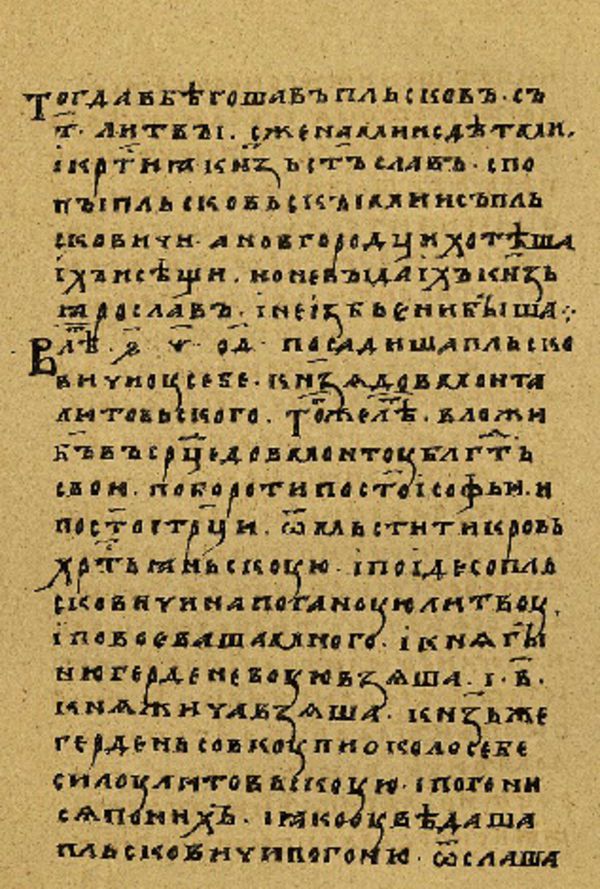 Тогда вбѣгоша въ Пльсковъ съ
т҃· литвы· съ женами и съ дѣтми·
і крт҃и ꙗ кнз҃ь ст҃ъславъ· с по
пы пльсковьскыми и съ пль
сковичи· а новгородци хотѣша
іхъ исѣщи· но не выда іхъ кнз҃ь
ꙗрославъ· і не ізбьени быша·:
В лѣ҃· ҂ѕ҃· ѱ҃· о҃д· посадиша пльско
вичи оу себе· кнѧзѧ довмонта
литовьского· Томже лѣ҃· вложи
б҃ъ въ срц҃е довмонтоу блгт҃ь
свою· поборотипост҃оісофьи· и
по ст҃ост҃рц҃и· ѿмьститикровь
хрт҃ьꙗньскоую· і поіде со пль
сковичи на поганоую литвоу·
і повоеваша много· і кнѧгы
ню герденевоую взѧша· і· в҃·
кнѧжичавзѧша· кнз҃ьже
герденьсовкоупиоколосебе
силоу литовьскоую· і погони
сѧ по нихъ· і ꙗкооувѣдаша
пльсковичи погоню· ѿслаша